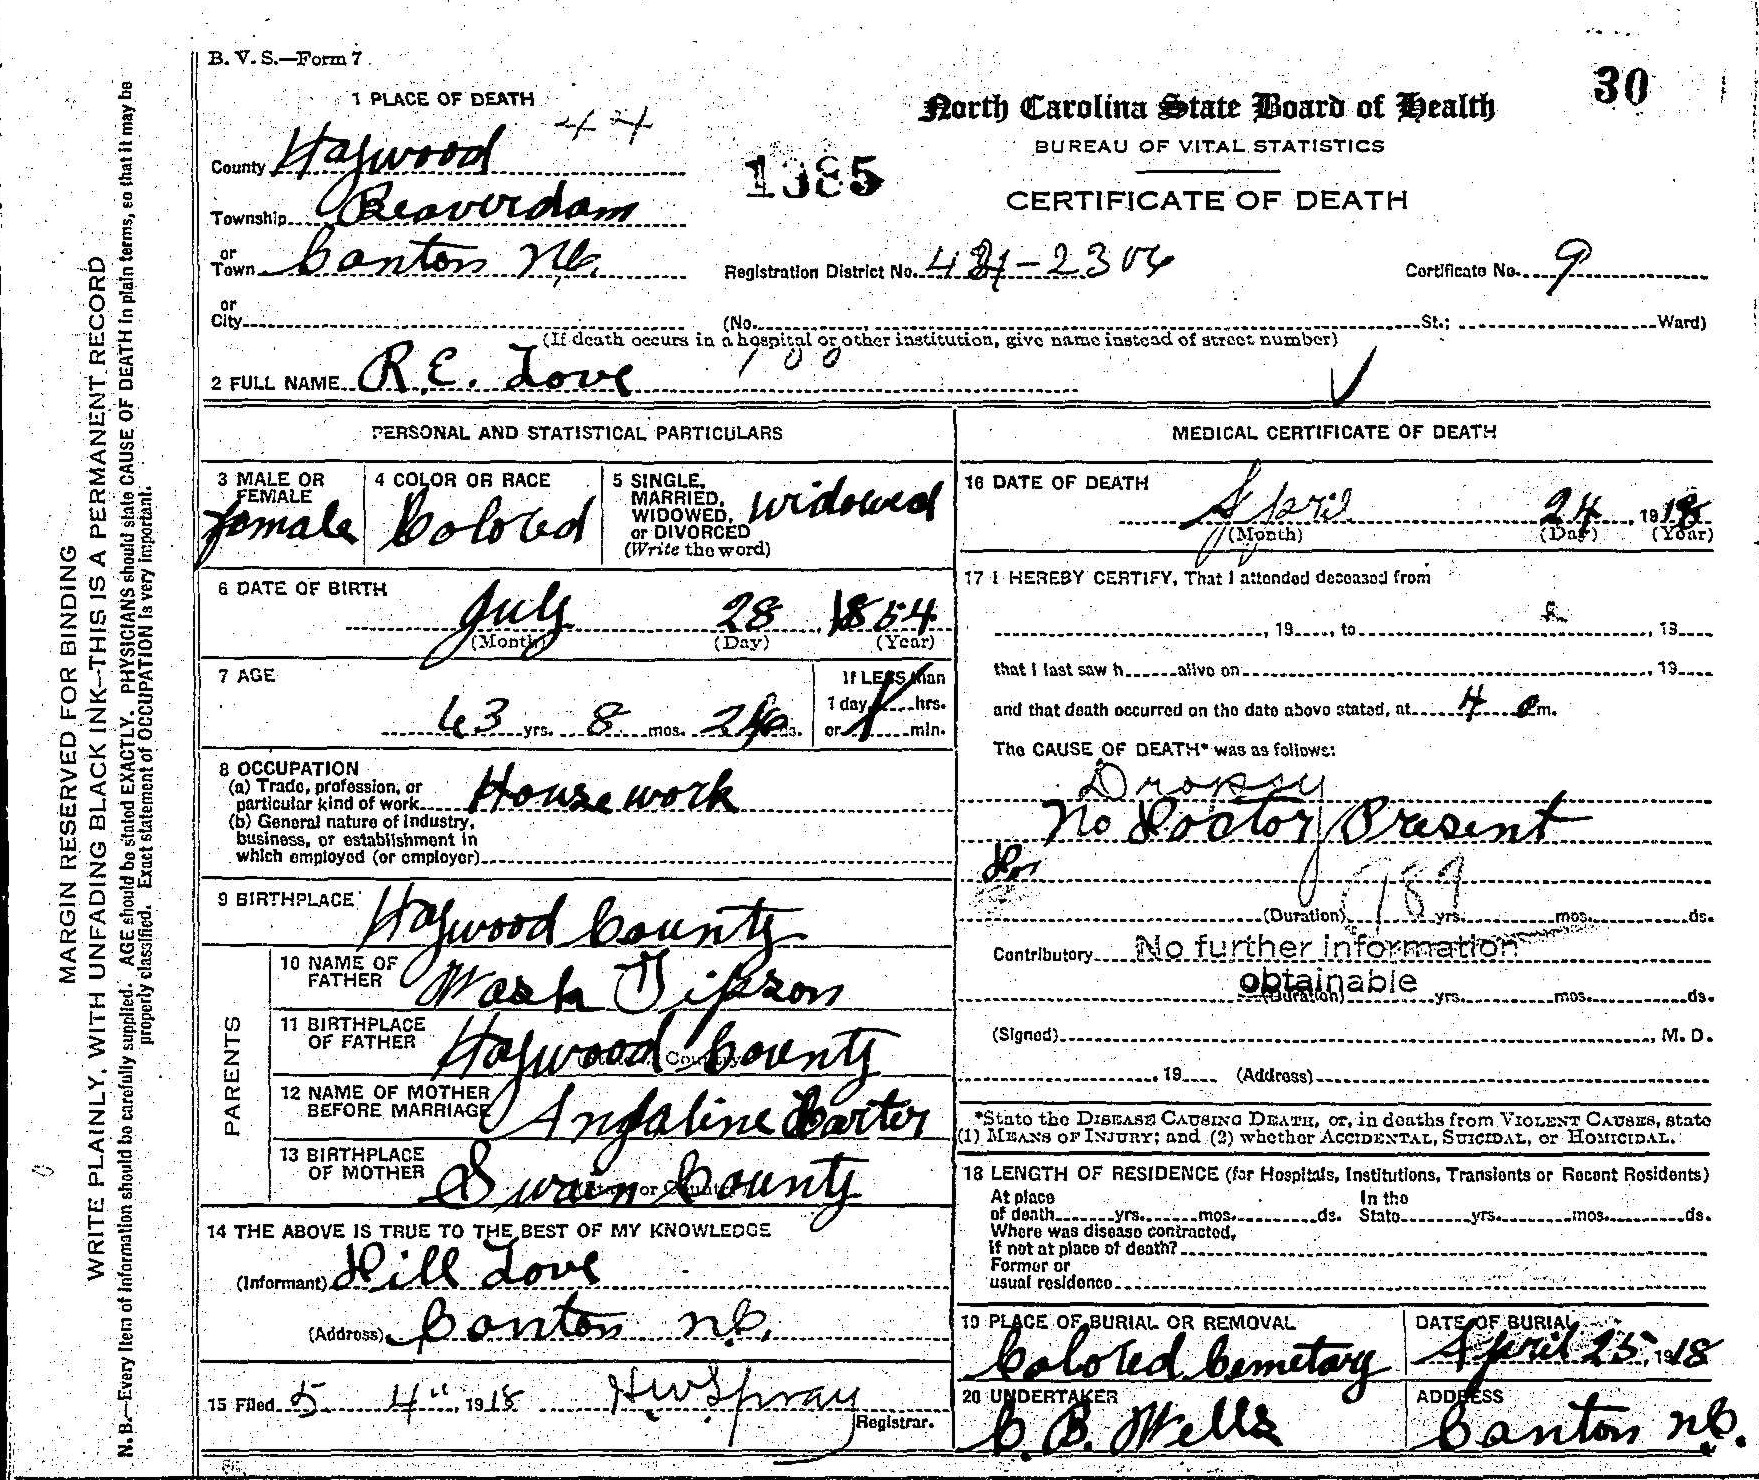 B. V. S.—Form 7
30
1 PLACE OF DEATH
44
North Carolina State Board of Health
BUREAU OF VITAL STATISTICS
CERTIFICATE OF DEATH
County Haywood
1385
Township Beaverdam
or Town Canton N.C.
Registration District No. 481-2306
Certificate No. 9
or City (No. St.; Ward)
(If death occurs in a hospital or other institution, give name instead of street number)
100
2 FULL NAME R.E. Love
PERSONAL AND STATISTICAL PARTICULARS
3 MALE OR FEMALE
female
4 COLOR OR RACE
Colored
5 SINGLE, MARRIED, WIDOWED, or DIVORCED (Write the word)
widowed
6 DATE OF BIRTH
July 28 1854
(Month) (Day) (Year)
7 AGE
63 yrs. 8 mos. 26 ds.
If LESS than
1 day, hrs.
or min.
8 OCCUPATION
(a) Trade, profession, or
particular kind of work House work
(b) General nature of industry,
business, or establishment in
which employed (or employer)
9 BIRTHPLACE Haywood County
PARENTS
10 NAME OF FATHER Wash Gipson
11 BIRTHPLACE OF FATHER Haywood County
12 NAME OF MOTHER BEFORE MARRIAGE Angaline Harter
13 BIRTHPLACE OF MOTHER Swain County
14 THE ABOVE IS TRUE TO THE BEST OF MY KNOWLEDGE
(Informant) Hill Love
(Address) Canton N.C.
15 Filed 5 4" 1918 H.W. Spray
Registrar.
MEDICAL CERTIFICATE OF DEATH
16 DATE OF DEATH
April 24, 1918
(Month) (Day) (Year)
17 I HEREBY CERTIFY, That I attended deceased from
, 19 , to , 19
that I last saw h alive on , 19
and that death occurred on the date above stated, at 4 a m.
The CAUSE OF DEATH* was as follows:
Dropsy
No Doctor Present
189
(Duration) yrs. mos. ds.
Contributory No further information
obtainable
(Duration) yrs. mos. ds.
(Signed) , M. D.
, 19 (Address)
*State the DISEASE CAUSING DEATH, or, in deaths from VIOLENT CAUSES, state
(1) MEANS OF INJURY; and (2) whether ACCIDENTAL, SUICIDAL, or HOMICIDAL.
18 LENGTH OF RESIDENCE (for Hospitals, Institutions, Transients or Recent Residents)
At place In the
of death yrs. mos. ds. State yrs. mos. ds.
Where was disease contracted,
if not at place of death?
Former or
usual residence
19 PLACE OF BURIAL OR REMOVAL
Colored Cemetary
DATE OF BURIAL
April 25, 1918
20 UNDERTAKER
C. B. Wells
ADDRESS
Canton N.C.
MARGIN RESERVED FOR BINDING
WRITE PLAINLY, WITH UNFADING BLACK INK—THIS IS A PERMANENT RECORD
N. B.—Every item of information should be carefully supplied. AGE should be stated EXACTLY. PHYSICIANS should state CAUSE OF DEATH in plain terms, so that it may be
properly classified. Exact statement of OCCUPATION is very important.